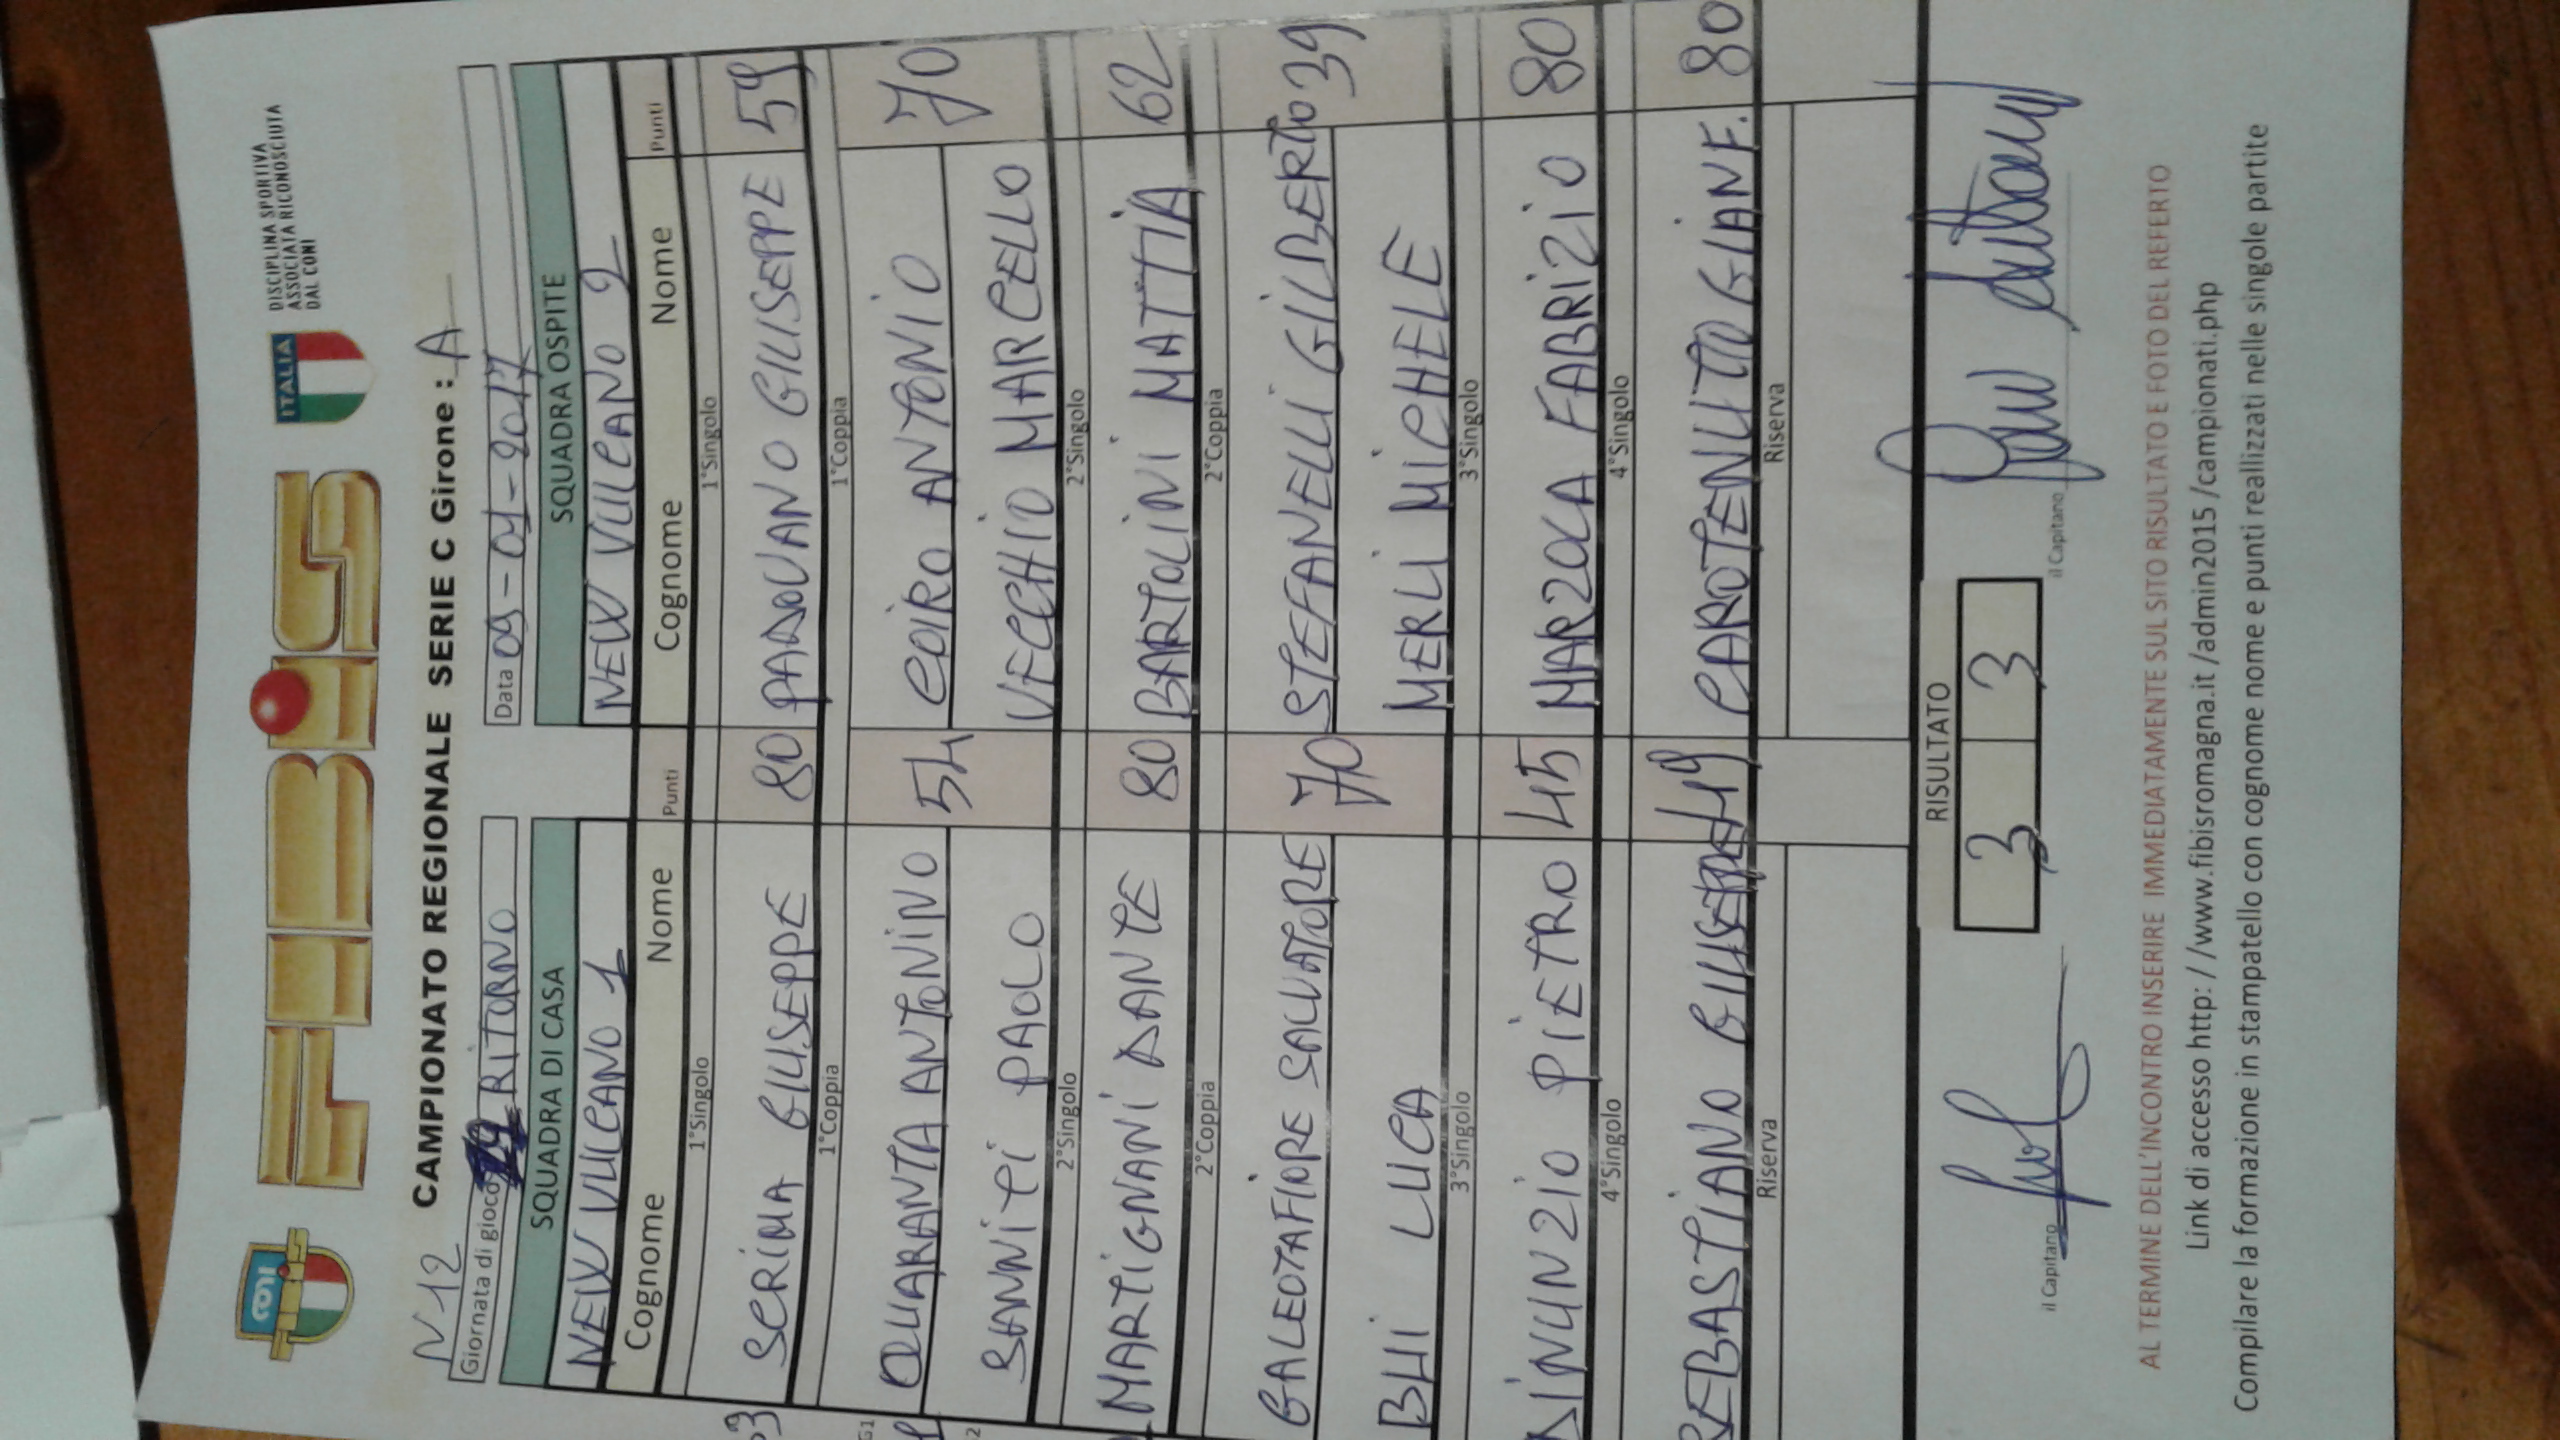 CONI
FIBiS
ITALIA
DISCIPLINA SPORTIVA
ASSOCIATA RICONOSCIUTA
DAL CONI
CAMPIONATO REGIONALE SERIE C Girone : A
N 12
Giornata di gioco RITORNO
Data 09-01-2017
SQUADRA DI CASA SQUADRA OSPITE
NEW VULCANO 1 NEW VULCANO 2
Cognome Nome Punti Cognome Nome Punti
1°Singolo 1°Singolo
SERINA GIUSEPPE 80 PADOVANO GIUSEPPE 59
1°Coppia 1°Coppia
QUARANTA ANTONINO 54 COIRO ANTONIO 70
SANNITI PAOLO VECCHIO MARCELLO
2°Singolo 2°Singolo
MARTIGNANI DANTE 80 BARTOLINI MATTIA 62
2°Coppia 2°Coppia
GALEOTAFIORE SALVATORE 70 STEFANELLI GILBERTO 39
LUCA MERLI MICHELE
3°Singolo 3°Singolo
DINUNZIO PIETRO 45 MARZOLA FABRIZIO 80
4°Singolo 4°Singolo
SEBASTIANO GIUSEPPE 49 CAROTENUTO GIANF. 80
Riserva Riserva
RISULTATO
3 3
il Capitano il Capitano
AL TERMINE DELL'INCONTRO INSERIRE IMMEDIATAMENTE SUL SITO RISULTATO E FOTO DEL REFERTO
Link di accesso http: / /www.fibisromagna.it /admin2015 /campionati.php
Compilare la formazione in stampatello con cognome nome e punti reallizzati nelle singole partite